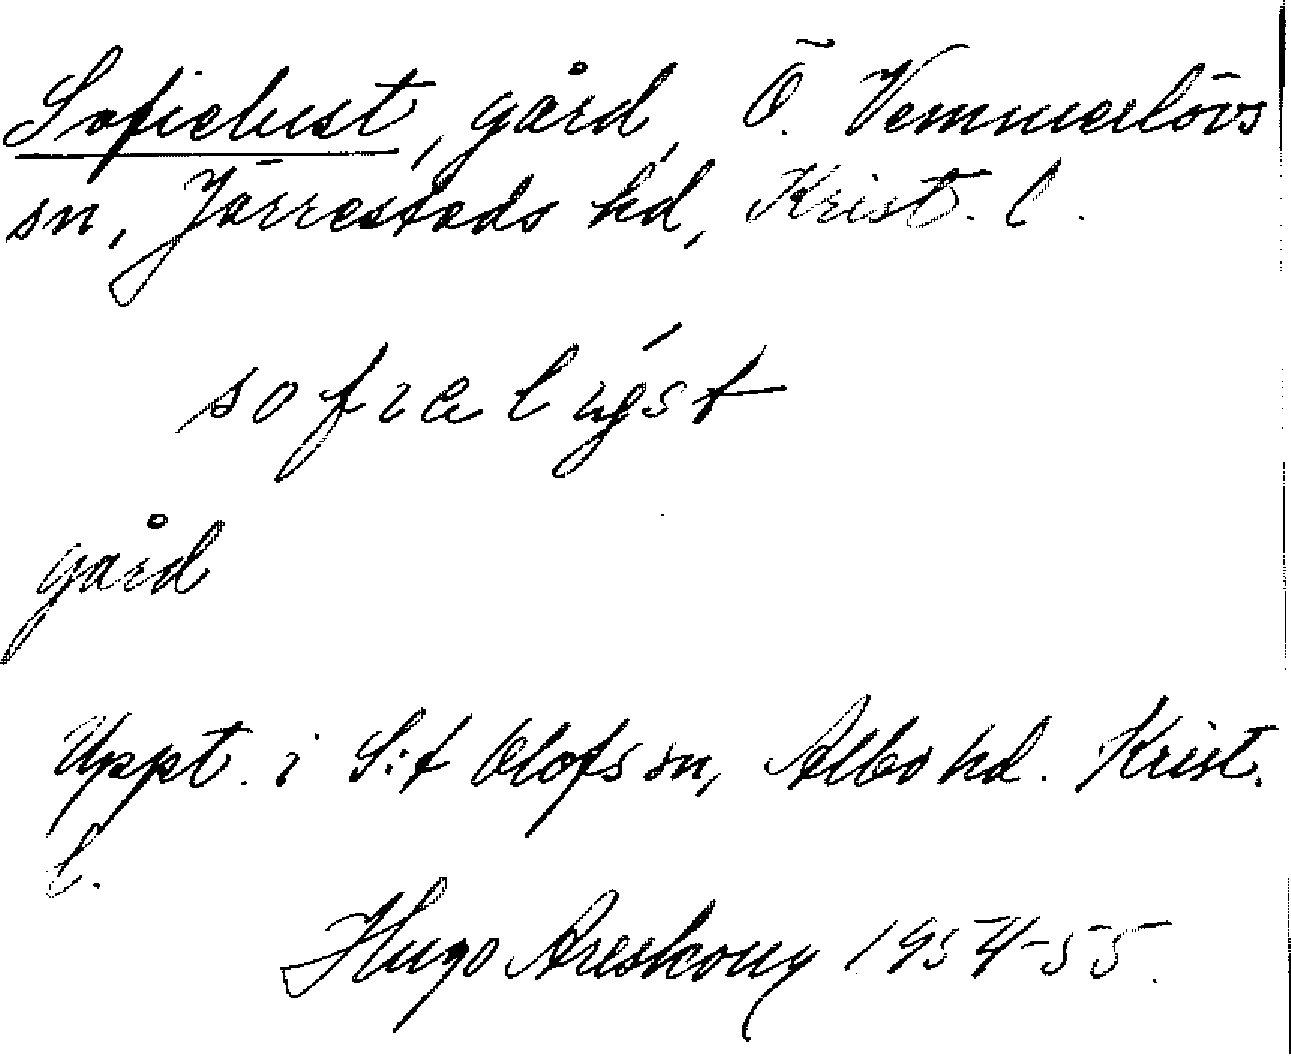 Sofielust, gård, Ö. Vemmerlövs
sn, Järrestads hd, Krist. l.
gård
Uppt. i S:t Olofs sn, Albo hd. Krist.
l.
Hugo Areskoug 1954-55.